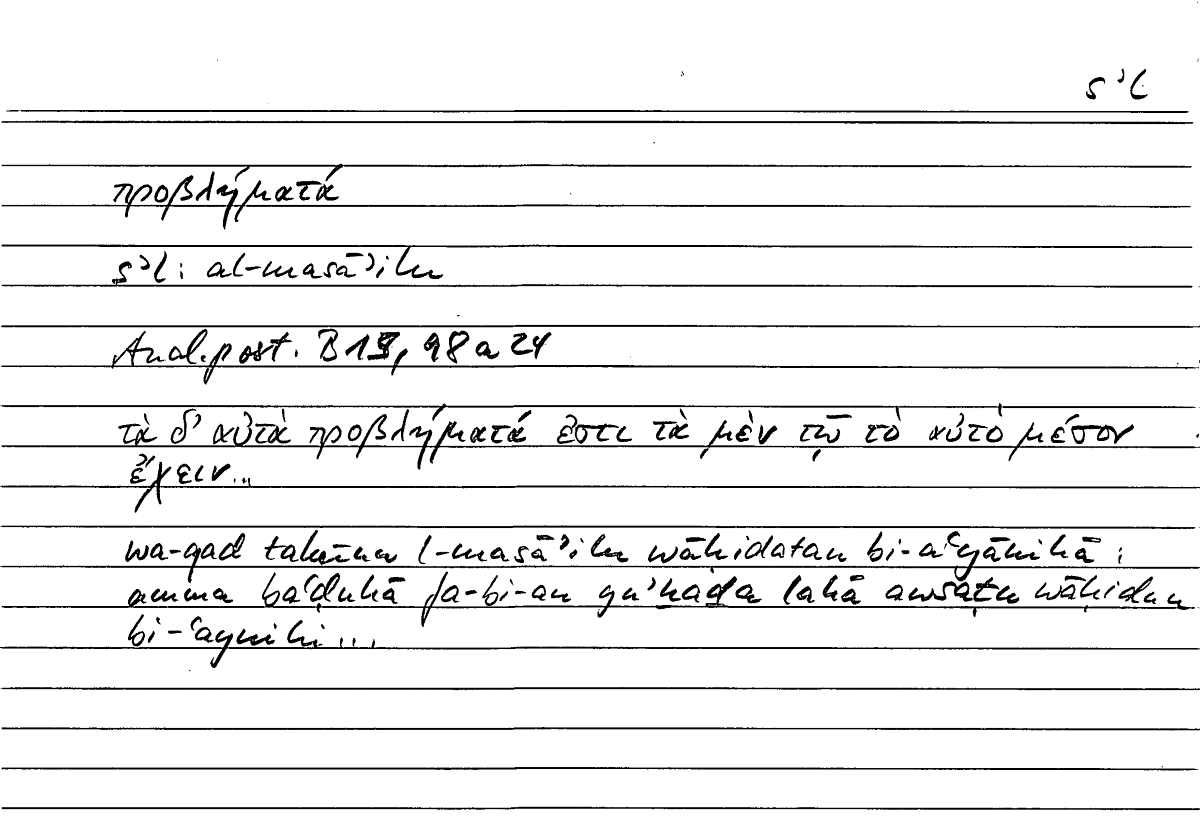 sʾl
προβλήματά
sʾl: al-masāʾilu
Anal. post. B 15, 98 a 24
τὰ δ' αὐτὰ προβλήματά ἐστι τὰ μὲν τῷ τὸ αὐτὸ μέσον
ἔχειν...
wa-qad takūnu l-masāʾilu wāḥidatan bi-aʿyānihā:
amma baʿḍuhā fa-bi-an yuʾḫaḏa lahā awsaṭu wāḥidun
bi-ʿaynihi...